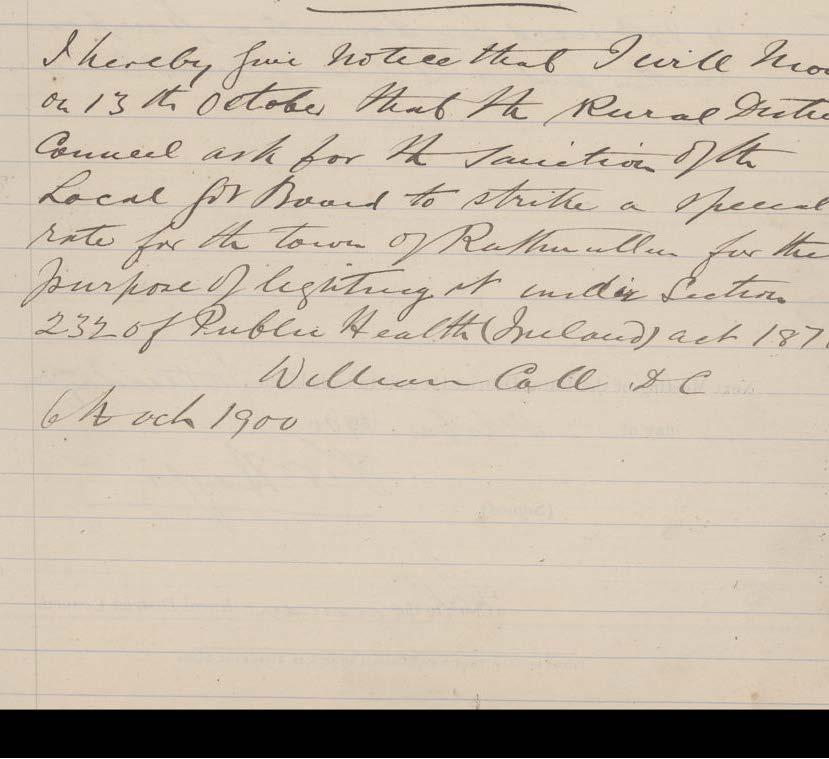 I hereby give Notice that I will Mo
on 13th October that the Rural Distri
Council ask for the Sanction of the
Local Gvt Board to strike a special
rate for the town of Rathmullen for the
purpose of lightning it under Section
232 of Public Health (Ireland) act 187
William Coll D C
6th Oct 1900